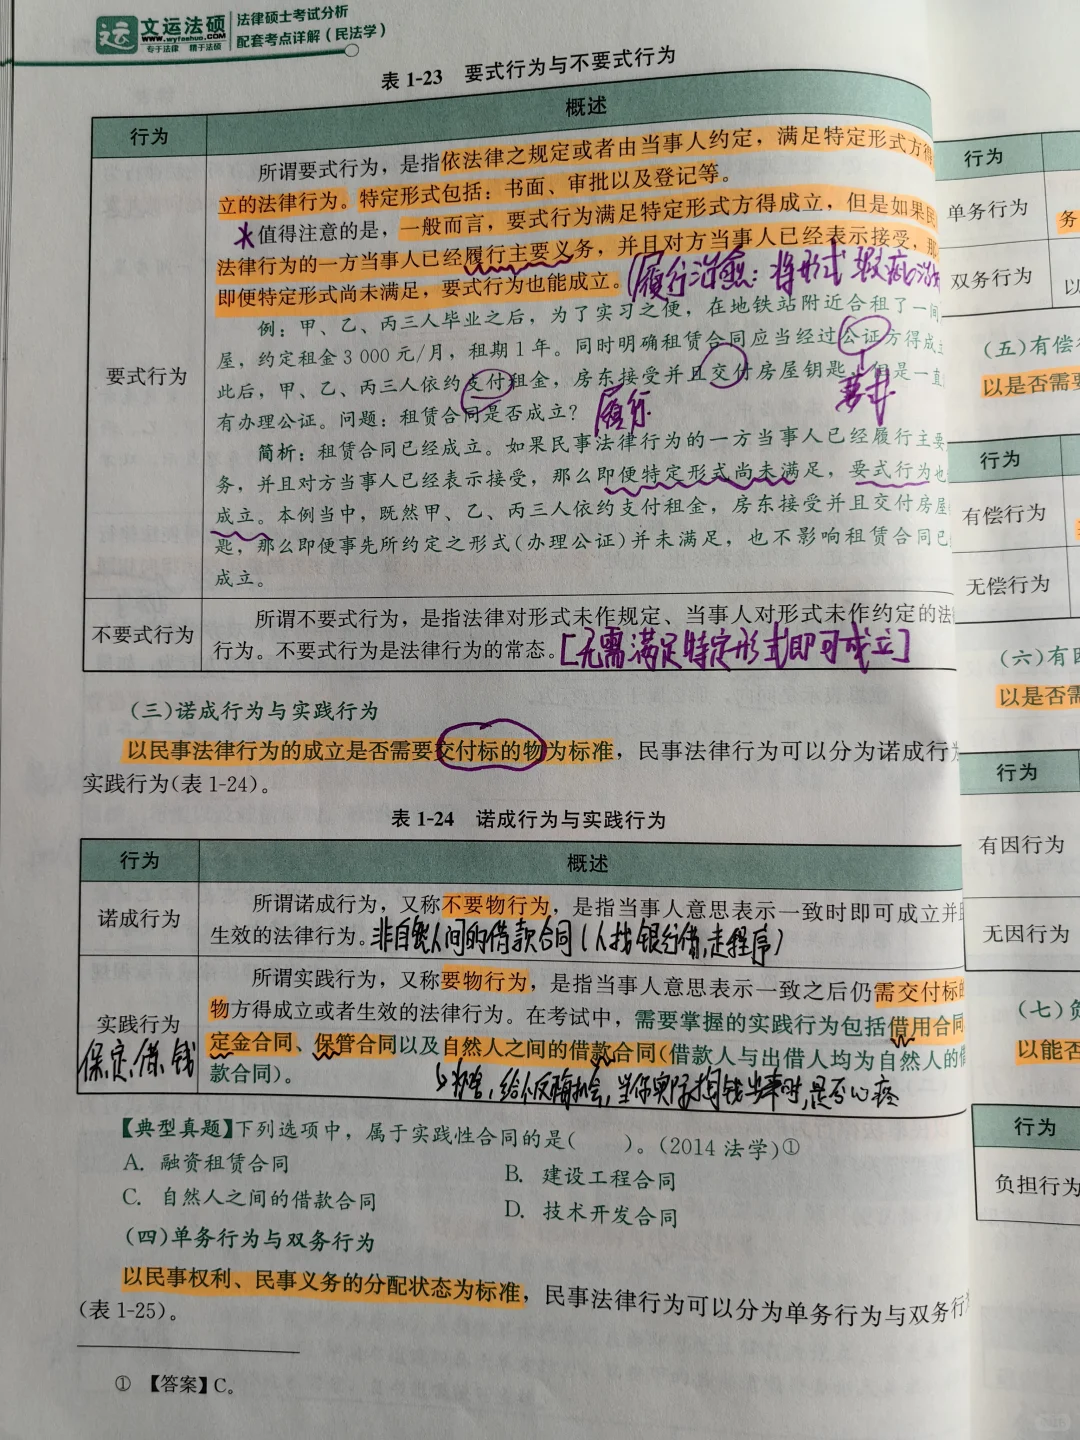 文运法硕
www.wyfashuo.com
专于法律 精于法硕
法律硕士考试分析
配套考点详解（民法学）
表 1-23 要式行为与不要式行为
行为
概述
要式行为
所谓要式行为，是指依法律之规定或者由当事人约定，满足特定形式方得
立的法律行为。特定形式包括：书面、审批以及登记等。
值得注意的是，一般而言，要式行为满足特定形式方得成立，但是如果民
法律行为的一方当事人已经履行主要义务，并且对方当事人已经表示接受，那
即便特定形式尚未满足，要式行为也能成立。
（履行治愈：将形式瑕疵治
例：甲、乙、丙三人毕业之后，为了实习之便，在地铁站附近合租了一间
屋，约定租金 3 000 元/月，租期 1 年。同时明确租赁合同应当经过公证方得成立
此后，甲、乙、丙三人依约支付租金，房东接受并且交付房屋钥匙，但是一直
有办理公证。问题：租赁合同是否成立？
履行
要式
简析：租赁合同已经成立。如果民事法律行为的一方当事人已经履行主要
务，并且对方当事人已经表示接受，那么即便特定形式尚未满足，要式行为也
成立。本例当中，既然甲、乙、丙三人依约支付租金，房东接受并且交付房屋
匙，那么即便事先所约定之形式（办理公证）并未满足，也不影响租赁合同已
成立。
不要式行为
所谓不要式行为，是指法律对形式未作规定、当事人对形式未作约定的法
行为。不要式行为是法律行为的常态。
[无需满足特定形式即可成立]
（三）诺成行为与实践行为
以民事法律行为的成立是否需要交付标的物为标准，民事法律行为可以分为诺成行为
实践行为（表 1-24）。
表 1-24 诺成行为与实践行为
行为
概述
诺成行为
所谓诺成行为，又称不要物行为，是指当事人意思表示一致时即可成立并
生效的法律行为。
非自然人间的借款合同（人找银行借，走程序）
实践行为
保、定、借、钱
所谓实践行为，又称要物行为，是指当事人意思表示一致之后仍需交付标的
物方得成立或者生效的法律行为。在考试中，需要掌握的实践行为包括借用合同
定金合同、保管合同以及自然人之间的借款合同（借款人与出借人均为自然人的借
款合同）。
给个反悔机会，当你实际掏钱出来时，是否心疼
【典型真题】下列选项中，属于实践性合同的是（ ）。（2014 法学）①
A. 融资租赁合同
B. 建设工程合同
C. 自然人之间的借款合同
D. 技术开发合同
（四）单务行为与双务行为
以民事权利、民事义务的分配状态为标准，民事法律行为可以分为单务行为与双务行为
（表 1-25）。
① 【答案】C。
行为
单务行为
务
双务行为
以
（五）有偿
以是否需要
行为
有偿行为
无偿行为
（六）有因
以是否需
行为
有因行为
无因行为
（七）负
以能否
行为
负担行为